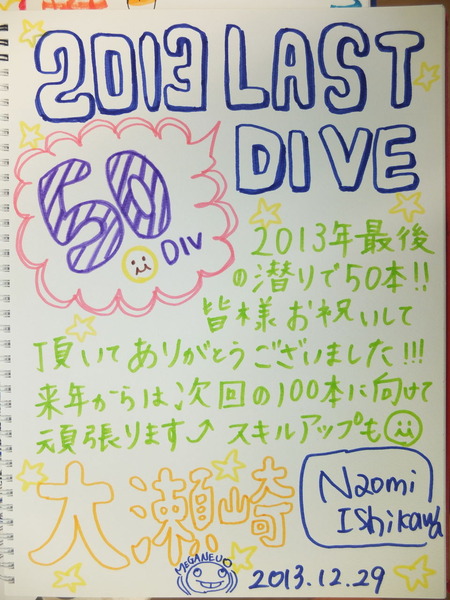 2013 LAST
DIVE
50
DIV
2013年最後
の潜りで50本!!
皆様お祝いして
頂いてありがとうございました!!!
来年からは次回の100本に向けて
頑張ります⤴ スキルアップも
大瀬崎
Naomi
Ishikawa
MEGANEUO
2013.12.29